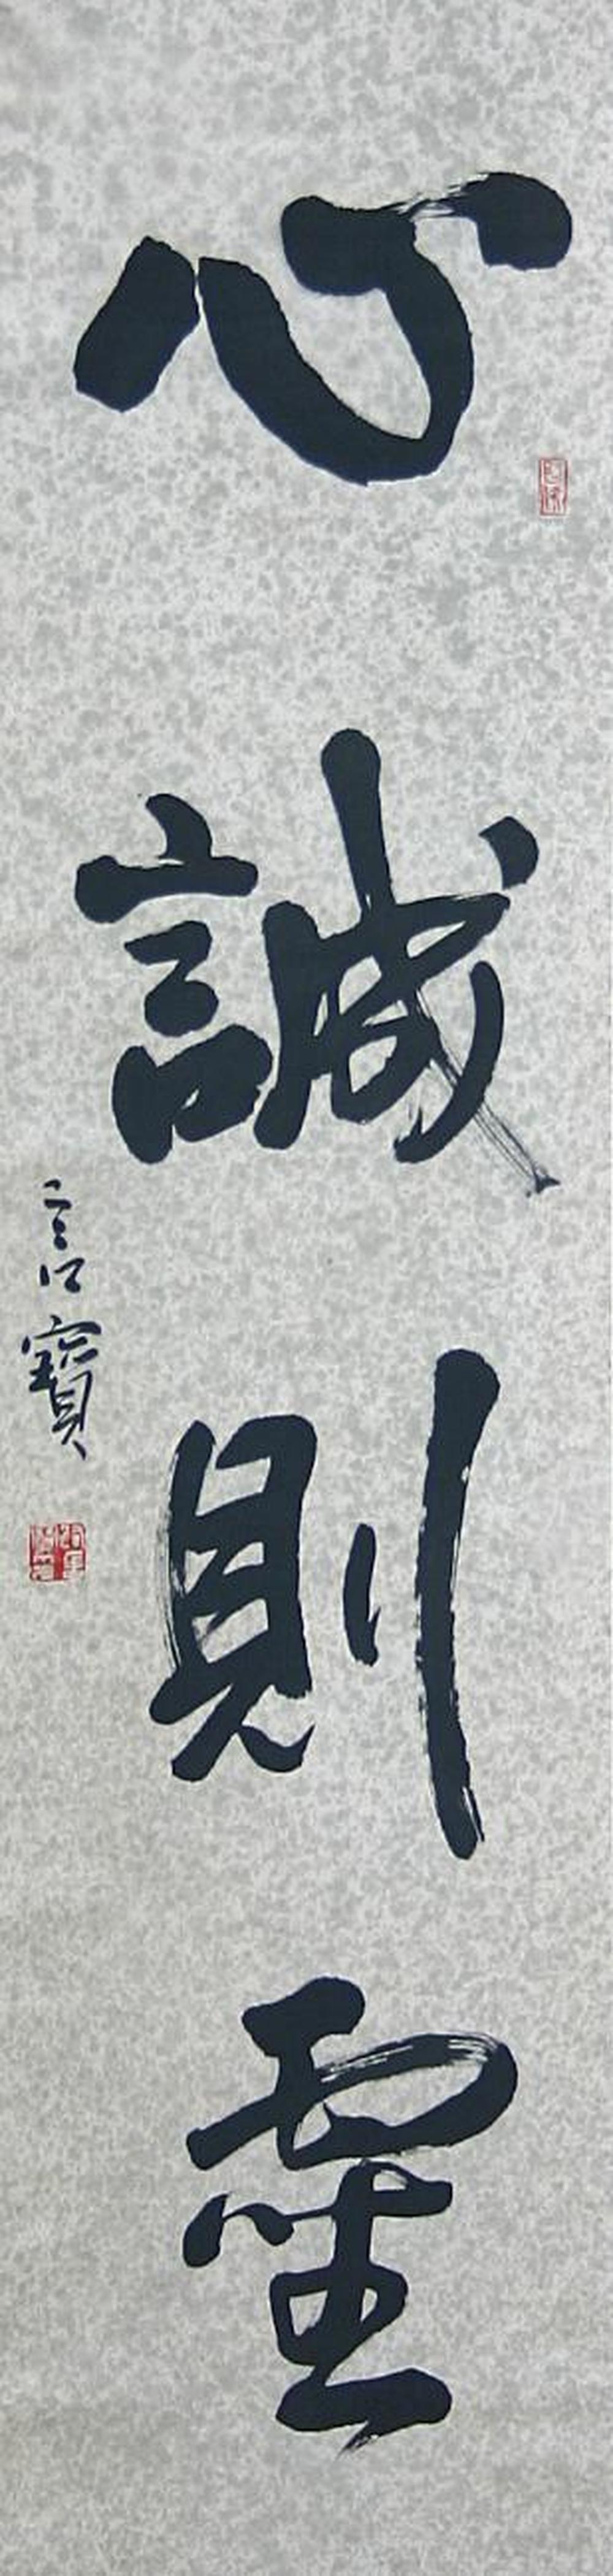 心誠則靈
言寶